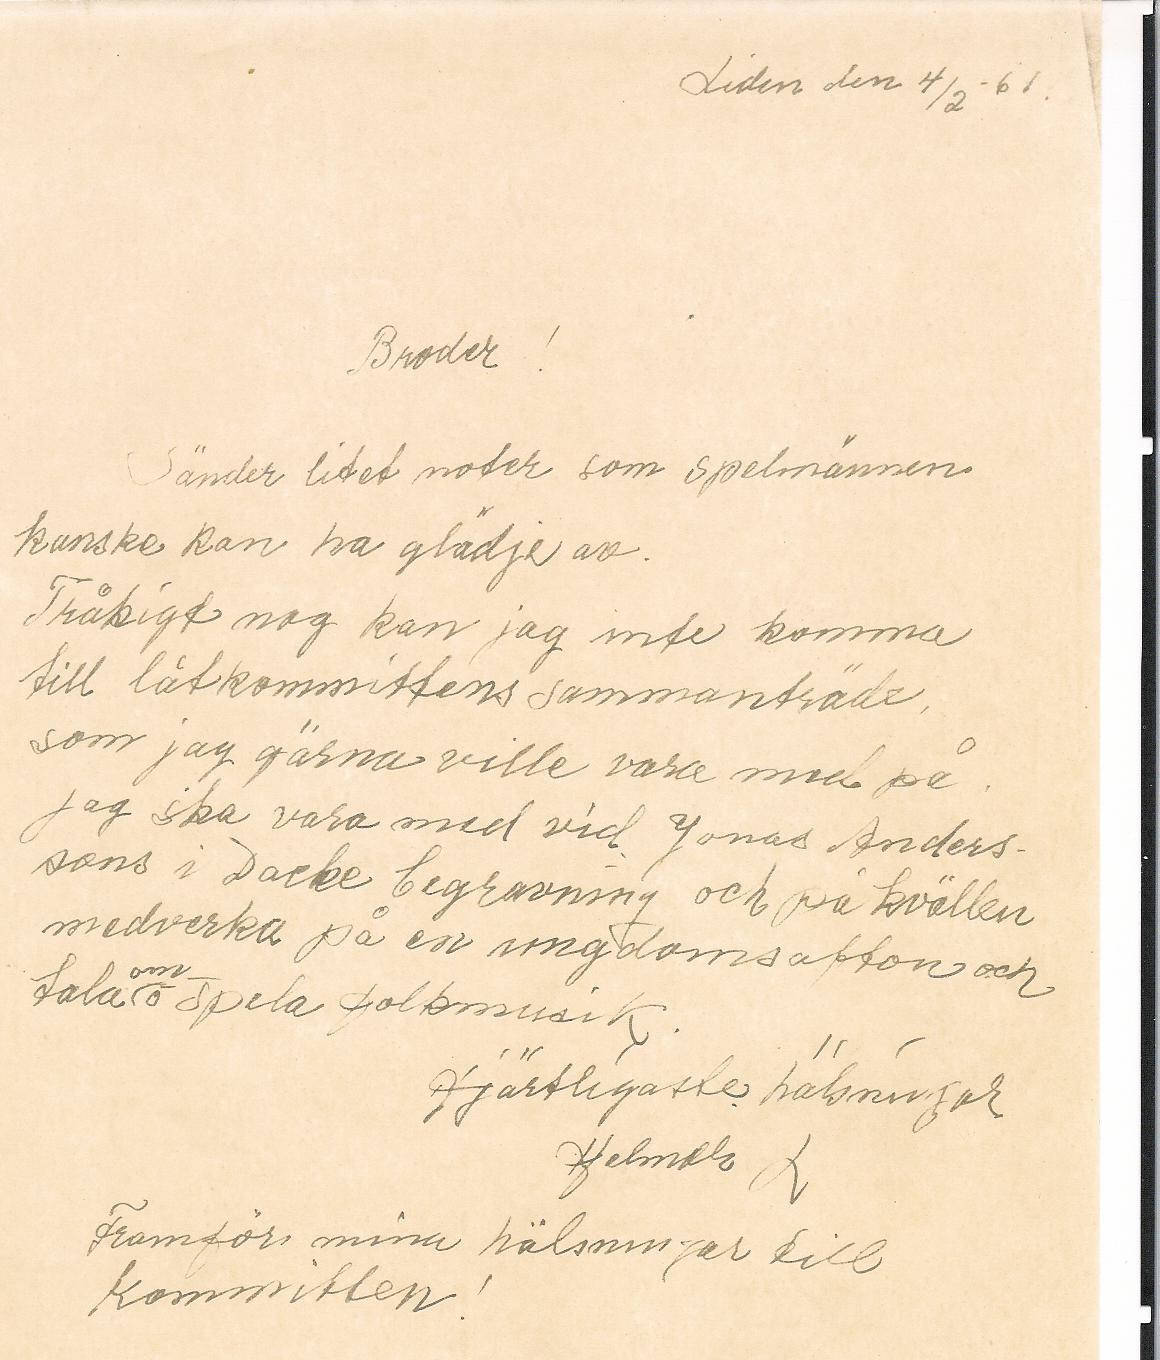 Liden den 4/2 -61.
Broder !
Sänder litet noter som spelmännen
kanske kan ha glädje av.
Tråkigt nog kan jag inte komma
till låtkommittens sammanträde,
som jag gärna ville vara med på.
Jag ska vara med vid Jonas Anders-
sons i Dacke begravning och på kvällen
medverka på en ungdomsafton och
tala om o spela folkmusik.
Hjärtligaste hälsningar
Hjelmdal L
Framför mina hälsningar till
Kommitten!